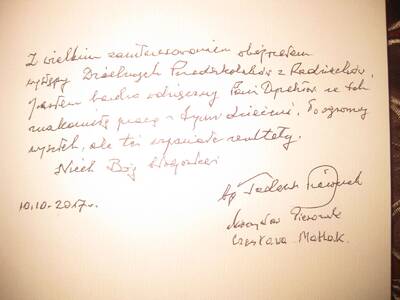 Z wielkim zainteresowaniem obejrzałem
występy Dzielnych Przedszkolaków z Radziechów.
Jestem bardzo wdzięczny Pani Dyrektor za tak
znakomitą pracę z tymi dziećmi. To ogromny
wysiłek, ale też wspaniałe rezultaty.
Niech Bóg błogosławi
bp Tadeusz Pieronek
10.10.2017r.
Pieronek
Czesława Matlak